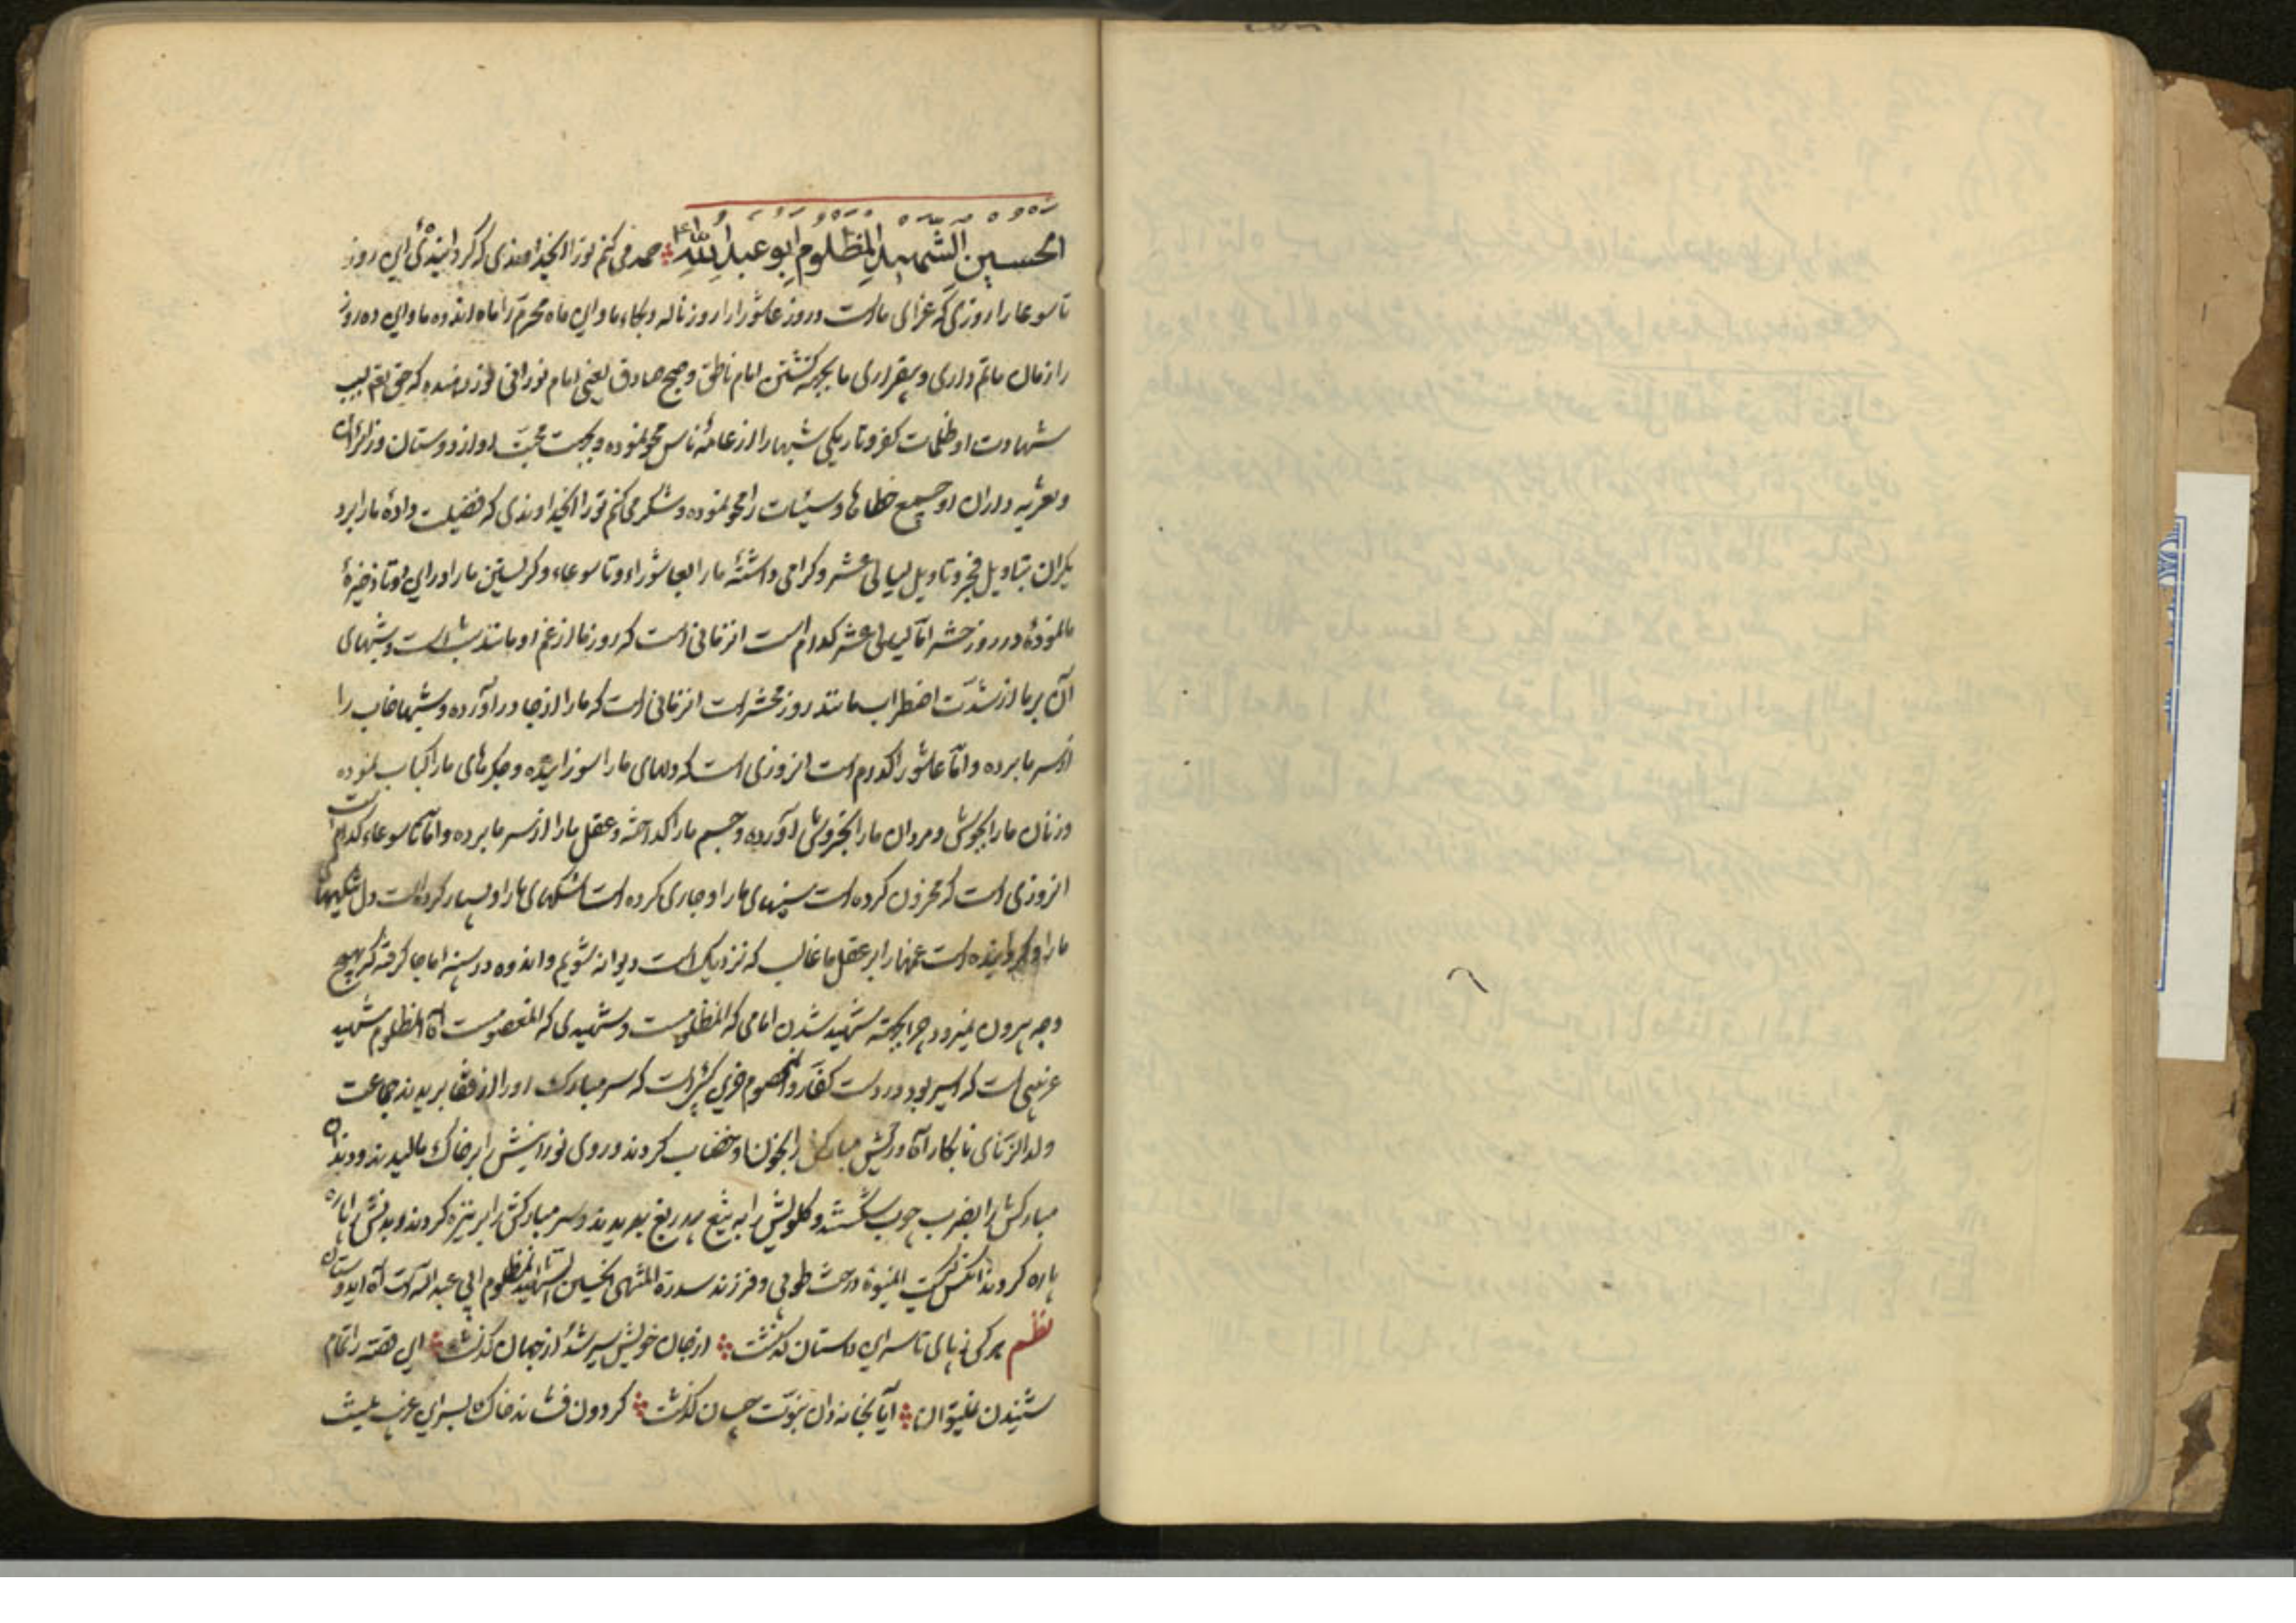 الحسین الشهید المظلوم ابو عبد الله حمد می کنم تورا ایخداوندی که گردانیدهٔ این روز
تاسوعا را روزی که عزای ماست و روز عاشورا را روز ناله و بکاء ما و این ماه محرم را ماه اندوه ما و این ده روز
را زمان ماتم داری و بیقراری ما بجهة کشتن امام ناطق و صبح صادق یعنی امام نورانی که حق تعم بسبب
شهادت او ظلمات کفر و تاریکی شبها را از عامهٔ ناس محو نموده و بجهت محبت او از دوستان و زائران
و تعزیه داران او جمیع خطاها و سیئات را محو نموده و شکر می کنم تورا ایخداوندی که فضیلت دادهٔ ما را بر
دیگران بتاویل فجر و تاویل لیالی عشر و گرامی داشتهٔ ما را بعاشوراء و تاسوعاء و گریستن ما را در این ذخیرهٔ
ما نمودهٔ در روز حشر اما لیالی عشر کدام است انزمانی است که روز ما از غم او مانند شب است و شبهای
آن بر ما از شدت اضطراب مانند روز محشر است انزمانی است که ما را از جا در آورده و شبها خواب را
از سر ما برده و اما عاشورا کدام است انروزی است که دلهای ما را سوزانیده و جگرهای ما را کباب نموده
و زنان ما را بجوش و مردان ما را بخروش آورده و جسم ما را گداخته و عقل ما را از سر ما برده و اما تاسوعاء کدام است
انروزی است که محزون کرده است سینهای ما را و جاری کرده است اشکهای ما را و بسیار کرده است دل تنگیهای
ما را و گردانیده است غمها را بر عقل ما غالب که نزدیک است دیوانه شویم و اندوه در سینه ما جا گرفته که بهیچ
وجه بیرون نمیرود چرا بجهته شهید شدن امامی که المظلومست و شهیدی که المعصومست اما المظلوم شهید
غریبی است که اسیر بود در دست کفار و المعصوم است که سر مبارک او را از قفا بریدند جماعت
ولد الزنای نابکار آه و ریش مبارکش را بخون او خضاب کردند و روی نورانیش را بر خاک مالیدند و دندان
مبارکش را بضرب چوب شکستند و گلویش را به تیغ بیدریغ بریدند و سر مبارکش را بر نیزه کردند و بدنش را پاره
پاره کردند درخت طوبی و فرزند سدرة المنتهی الحسین الشهید المظلوم ابی عبد الله است آه ایدوستان
نظم هر کی ز پای تا سر این داستان گذشت از جان خویش سیر شد از جهان گذشت این قصه را تمام
شنیدن نمیتوان آیا بخاندان نبوت چسان گذشت گردون فشاند خاک بسر این غریب کیست